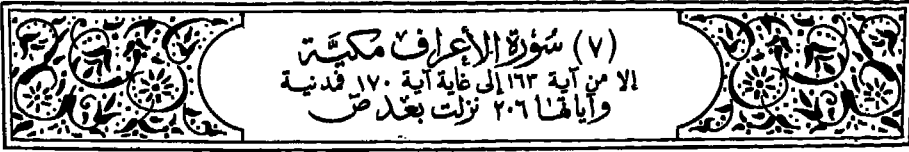 (٧) سُورَةِ الأعراف مكيَّة
إلا من آية ١٦٣ إلى غاية آية ١٧٠ فمدنية
وآياتها ٢٠٦ نزلت بعد ص